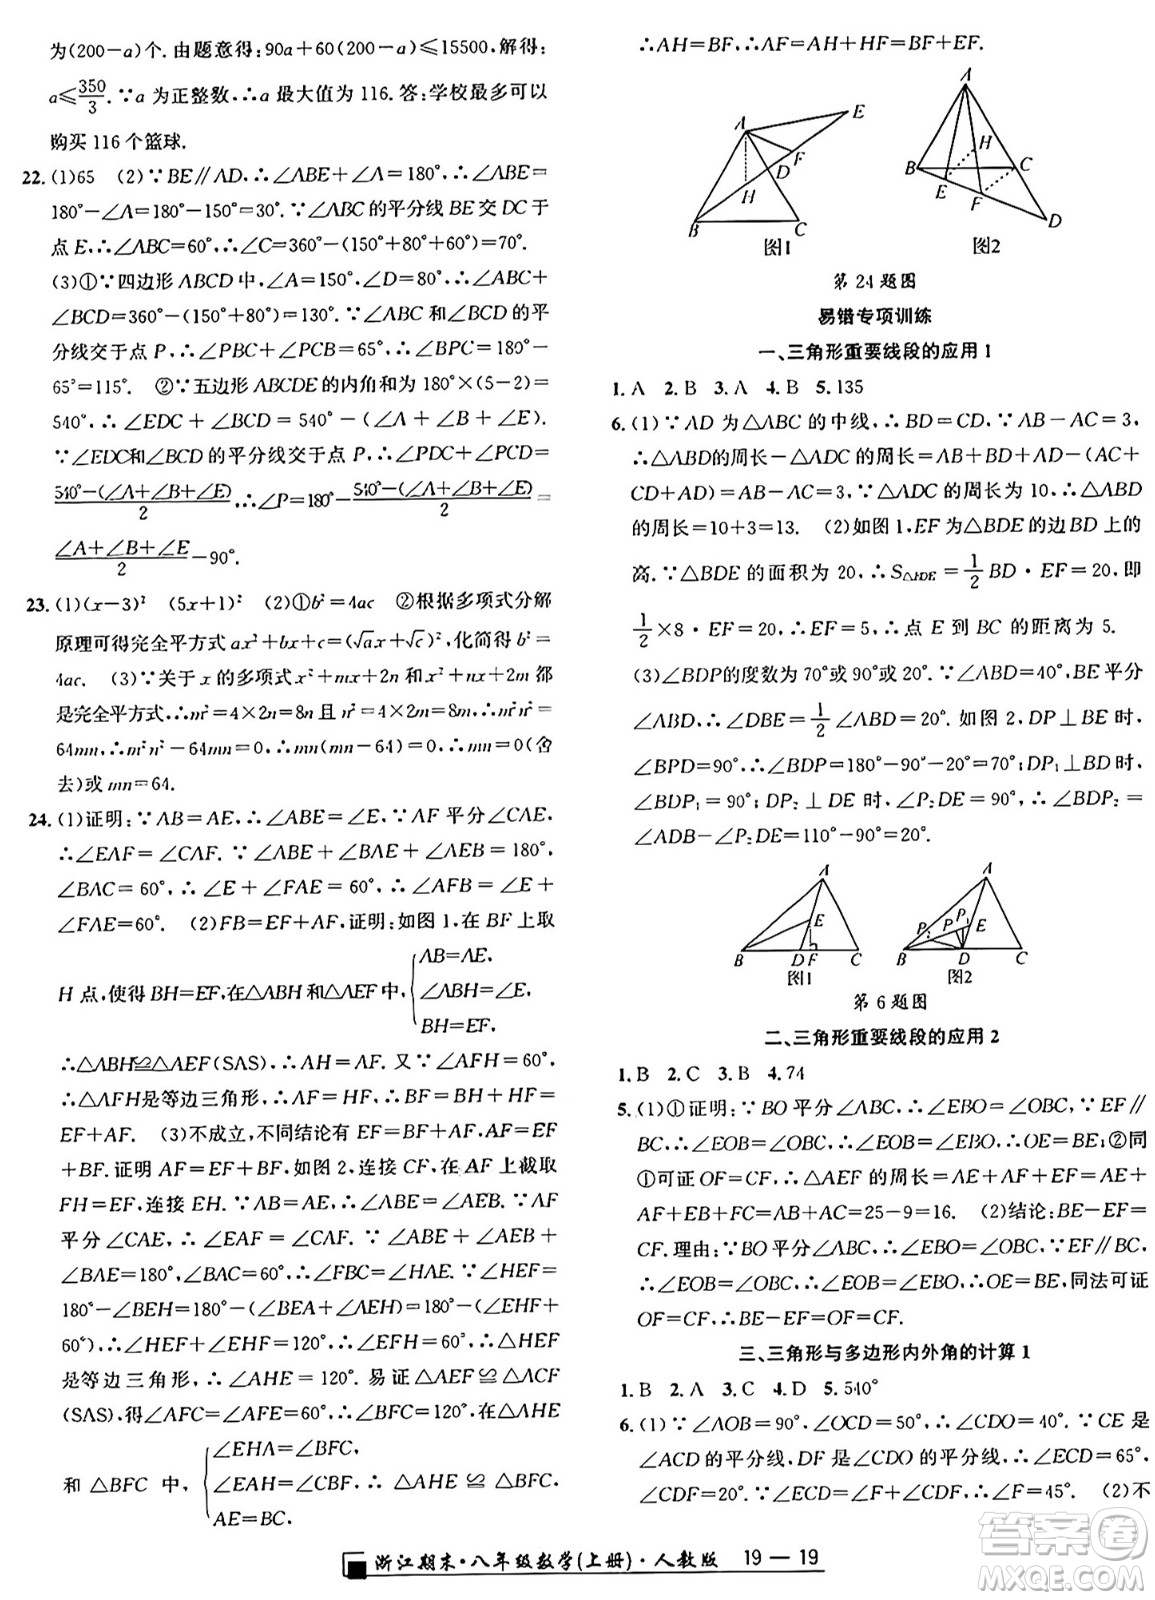 为(200－a)个. 由题意得:90a＋60(200－a)≤15500,解得:
a≤350/3. ∵a 为正整数,∴a 最大值为 116. 答:学校最多可以
购买 116 个篮球.
22. (1)65 (2)∵BE∥AD,∴∠ABE＋∠A＝180°,∴∠ABE＝
180°－∠A＝180°－150°＝30°. ∵∠ABC的平分线BE交DC于
点E,∴∠ABC＝60°,∴∠C＝360°－(150°＋80°＋60°)＝70°.
(3)①∵四边形ABCD中,∠A＝150°,∠D＝80°,∴∠ABC＋
∠BCD＝360°－(150°＋80°)＝130°. ∵∠ABC 和∠BCD的平
分线交于点P,∴∠PBC＋∠PCB＝65°,∴∠BPC＝180°－
65°＝115°. ②∵五边形ABCDE的内角和为180°×(5－2)＝
540°,∴∠EDC＋∠BCD＝540°－(∠A＋∠B＋∠E).
∵∠EDC和∠BCD的平分线交于点P,∴∠PDC＋∠PCD＝
540°－(∠A＋∠B＋∠E)/2,∴∠P＝180°－540°－(∠A＋∠B＋∠E)/2＝
∠A＋∠B＋∠E/2－90°.
23. (1)(x－3)² (5x＋1)² (2)①b²＝4ac ②根据多项式分解
原理可得完全平方式ax²＋bx＋c＝(√ax＋√c)²,化简得b²＝
4ac. (3)∵关于x的多项式x²＋mx＋2n和x²＋nx＋2m都
是完全平方式,∴m²＝4×2n＝8n且n²＝4×2m＝8m,∴m²n²＝
64mn,∴m²n²－64mn＝0,∴mn(mn－64)＝0,∴mn＝0(舍
去)或mn＝64.
24. (1)证明:∵AB＝AE,∴∠ABE＝∠E. ∵AF平分∠CAE,
∴∠EAF＝∠CAF. ∵∠ABE＋∠BAE＋∠E＝180°,
∠BAC＝60°,∴∠E＋∠EAF＝60°,∴∠AFB＝∠E＋
∠FAE＝60°. (2)FB＝EF＋AF,证明:如图1,在BF上取
H点,使得BH＝EF,在△ABH和△AEF中,{AB＝AE,
∠ABH＝∠E,
BH＝EF,
∴△ABH≌△AEF(SAS),∴AH＝AF. 又∵∠AFH＝60°,
∴△AFH是等边三角形,∴AF＝HF,∴BF＝BH＋HF＝
EF＋AF. (3)不成立,不同结论有EF＝BF＋AF或AF＝EF＋
BF. 证明AF＝EF＋BF,如图2,连接CF,在AF上截取
FH＝EF,连接EH. ∵AB＝AE,∴∠ABE＝∠AEB. ∵AF
平分∠CAE,∴∠EAF＝∠CAF. ∵∠ABE＋∠AEB＋
∠BAE＝180°,∠BAC＝60°,∴∠FBC＝∠HAE. ∵∠AEB＝
180°－∠BEH＝180°－(∠BEA＋∠AEH)＝180°－(∠EHF＋
60°),∴∠HEF＋∠EHF＝120°,∴∠EFH＝60°,∴△HEF
是等边三角形,∴∠AHE＝120°. 易证△AEF≌△ACF
(SAS),得∠AFC＝∠AFE＝60°,∴∠BFC＝120°,在△AHE
和△BFC中,{∠EHA＝∠BFC,
∠EAH＝∠CBF,∴△AHE≌△BFC,
AE＝BC,
∴AH＝BF,∴AF＝AH＋HF＝BF＋EF.
A
E
F
D
H
B
C
图1
A
H
B
C
E
F
D
图2
第24题图
易错专项训练
一、三角形重要线段的应用1
1. A 2. B 3. A 4. B 5. 135
6. (1)∵AD为△ABC的中线,∴BD＝CD. ∵AB－AC＝3,
∴△ABD的周长－△ADC的周长＝AB＋BD＋AD－(AC＋
CD＋AD)＝AB－AC＝3. ∵△ADC的周长为10,∴△ABD
的周长＝10＋3＝13. (2)如图1,EF为△BDE的边BD上的
高. ∵△BDE的面积为20,∴S△BDE＝1/2BD·EF＝20,即
1/2×8·EF＝20,∴EF＝5,∴点E到BC的距离为5.
(3)∠BDP的度数为70°或90°或20°. ∵∠ABD＝40°,BE平分
∠ABD,∴∠DBE＝1/2∠ABD＝20°. 如图2,DP⊥BE时,
∠BPD＝90°,∴∠BDP＝180°－90°－20°＝70°;DP₁⊥BD时,
∠BDP₁＝90°;DP₂⊥DE时,∠P₂DE＝90°,∴∠BDP₂＝
∠ADB－∠P₂DE＝110°－90°＝20°.
A
E
B
D
F
C
图1
A
P₂
P
P₁
E
B
D
C
图2
第6题图
二、三角形重要线段的应用2
1. B 2. C 3. B 4. 74
5. (1)①证明:∵BO平分∠ABC,∴∠EBO＝∠OBC,∵EF∥
BC,∴∠EOB＝∠OBC,∴∠EOB＝∠EBO,∴OE＝BE;②同
①可证OF＝CF,∴△AEF的周长＝AE＋AF＋EF＝AE＋
AF＋EB＋FC＝AB＋AC＝25－9＝16. (2)结论:BE－EF＝
CF. 理由:∵BO平分∠ABC,∴∠EBO＝∠OBC. ∵EF∥BC,
∴∠EOB＝∠OBC,∴∠EOB＝∠EBO,∴OE＝BE,同法可证
OF＝CF,∴BE－EF＝OF＝CF.
三、三角形与多边形内外角的计算1
1. B 2. A 3. C 4. D 5. 540°
6. (1)∵∠AOB＝90°,∠OCD＝50°,∴∠CDO＝40°. ∵CE是
∠ACD的平分线,DF是∠CDO的平分线,∴∠ECD＝65°,
∠CDF＝20°. ∵∠ECD＝∠F＋∠CDF,∴∠F＝45°. (2)不
浙江期末·八年级数学(上册)·人教版 19－19
答案圈
MXQE.COM